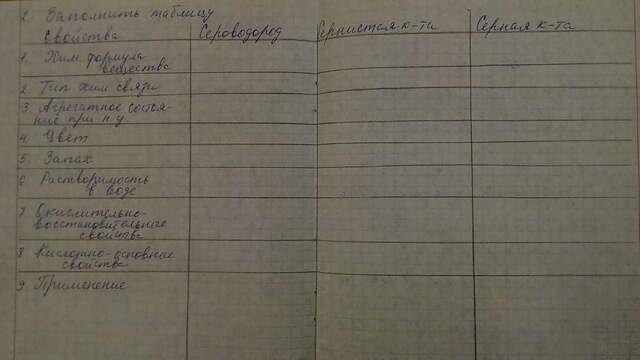 2. Заполнить таблицу
Свойства Сероводород Сернистая к-та Серная к-та
1. Хим. формула
вещества
2. Тип хим связи
3 Агрегатное состоя-
ние при н у
4. Цвет
5. Запах
6 Растворимость
в воде
7. Окислительно-
восстановительные
свойства
8 Кислотно-основные
свойства
9. Применение